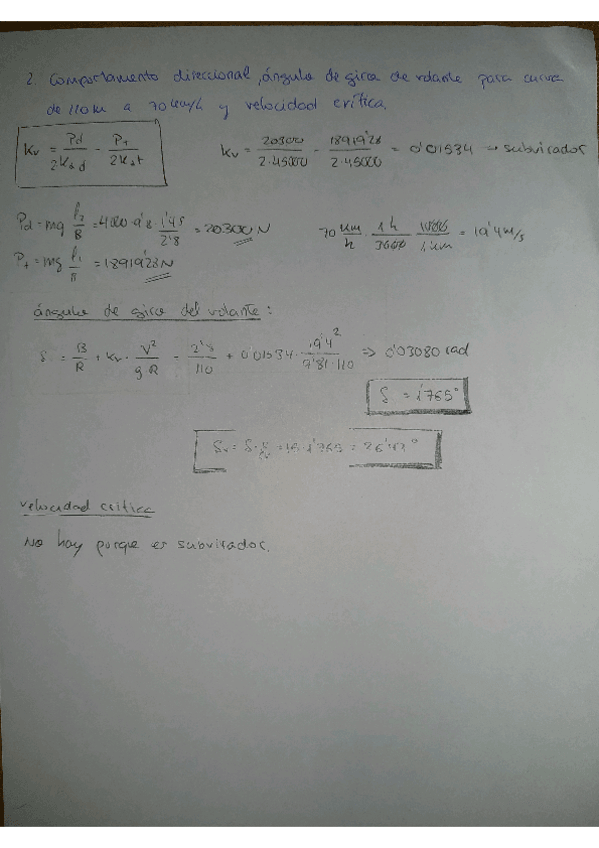 2. Comportamiento direccional, ángulo de giro de volante para curva
de 110 m a 70 km/h y velocidad crítica.
Kv = Pd / 2Kδd - Pt / 2Kδt
Kv = 20300 / 2·45000 - 18919'28 / 2·45000 = 0'01534 → subvirador
Pd = mg l2/B = 4000·9'8·1'45/2'8 = 20300 N
70 km/h · 1 h/3600 · 1000/1 km = 19'4 m/s
Pt = mg l1/B = 18919'28 N
ángulo de giro del volante:
δ = B/R + Kv · V²/g·R = 2'8/110 + 0'01534 · 19'4²/9'81·110 ⇒ 0'03080 rad
δ = 1'765°
δv = δ · = 15·1'765 = 26'47°
velocidad crítica
No hay porque es subvirador.